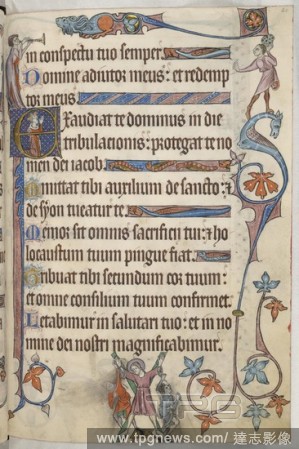 in conspectu tuo semper.
Domine adiutor meus: et redemp
tor meus.
Exaudiat te dominus in die
tribulacionis: protegat te no
men dei iacob.
Mittat tibi auxilium de sancto: et
de syon tueatur te.
Memor sit omnis sacrificii tui: et ho
locaustum tuum pingue fiat.
Tribuat tibi secundum cor tuum:
et omne consilium tuum confirmet.
Letabimur in salutari tuo: et in no
mine dei nostri magnificabimur.
TPG
www.tpgnews.com / 達志影像